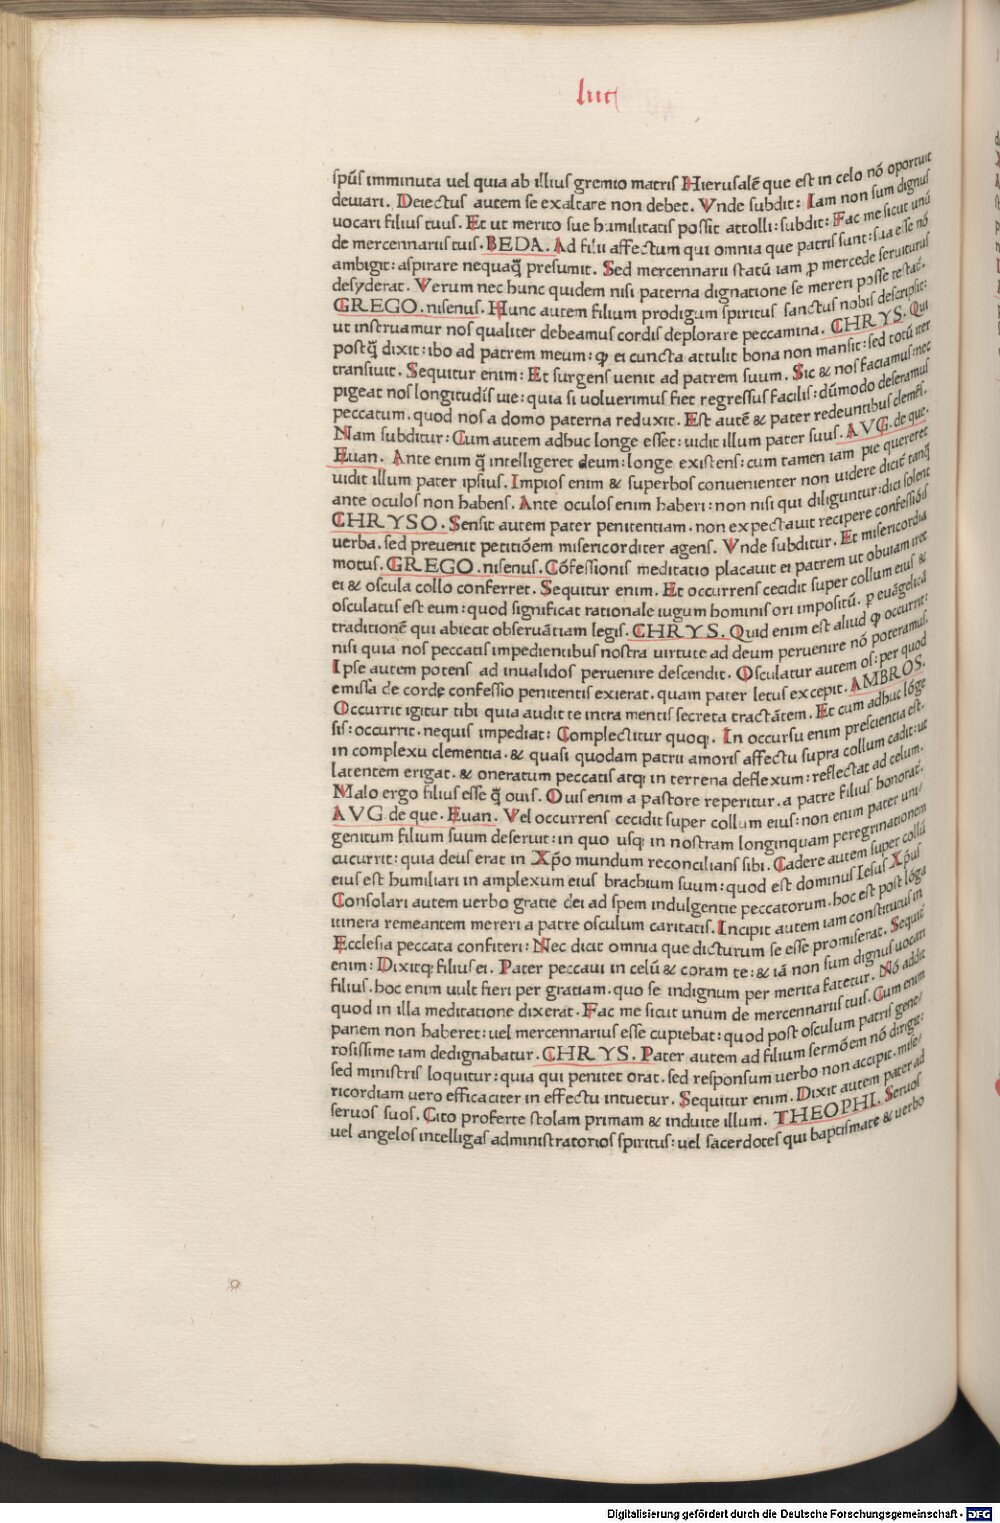 luc
spūs imminuta uel quia ab illius gremio matris Hierusalē que est in celo nō oportuit
deuiari. Deiectus autem se exaltare non debet. Vnde subdit: Iam non sum dignus
uocari filius tuus. Et ut merito sue humilitatis possit attolli: subdit: Fac me sicut unū
de mercennariis tuis. BEDA. Ad filii affectum qui omnia que patris sunt: sua esse nō
ambigit: aspirare nequaq̄ presumit. Sed mercennarii statū iam ꝓ mercede seruiturus
desyderat. Verum nec hunc quidem nisi paterna dignatione se mereri posse testat̄.
GREGO. nisenus. Hunc autem filium prodigum spiritus sanctus nobis descripsit:
ut instruamur nos qualiter debeamus cordis deplorare peccamina. CHRYS. Qui
postq̄ dixit: ibo ad patrem meum: ꝙ ei cuncta attulit bona non mansit: sed totū iter
transiuit. Sequitur enim: Et surgens uenit ad patrem suum. Sic & nos faciamus: nec
pigeat nos longitudis uie: quia si uoluerimus fiet regressus facilis: dūmodo deseramus
peccatum. quod nos a domo paterna reduxit. Est autē & pater redeuntibus clemēs.
Nam subditur: Cum autem adhuc longe esset: uidit illum pater suus. AVG. de que.
Euan. Ante enim q̄ intelligeret deum: longe existens: cum tamen iam pie quereret
uidit illum pater ipsius. Impios enim & superbos conuenienter non uidere dicit̄ tanq̄
ante oculos non habens. Ante oculos enim haberi: non nisi qui diliguntur: dici solent
CHRYSO. Sensit autem pater penitentiam. non expectauit recipere confessiōis
uerba. sed preuenit petitiōem misericorditer agens. Vnde subditur. Et misericordia
motus. GREGO. nisenus. Cōfessionis meditatio placauit ei patrem ut obuiam iret
ei & oscula collo conferret. Sequitur enim. Et occurrens cecidit super collum eius &
osculatus est eum: quod significat rationale iugum hominis ori impositū. ꝑ euāgelicā
traditionē qui abiecit obseruātiam legis. CHRYS. Quid enim est aliud ꝙ occurrit:
nisi quia nos peccatis impedientibus nostra uirtute ad deum peruenire nō poteramus.
Ipse autem potens ad inualidos peruenire descendit. Osculatur autem os: per quod
emissa de corde confessio penitentis exierat. quam pater letus excepit. AMBROS.
Occurrit igitur tibi quia audit te intra mentis secreta tractātem. Et cum adhuc lōge
sis: occurrit. nequis impediat: Complectitur quoq;. In occursu enim prescientia est.
in complexu clementia. & quasi quodam patrii amoris affectu supra collum cadit: ut
latentem erigat. & oneratum peccatis atq; in terrena deflexum: reflectat ad celum.
Malo ergo filius esse q̄ ouis. Ouis enim a pastore reperitur. a patre filius honorat̄.
AVG de que. Euan. Vel occurrens cecidit super collum eius: non enim pater uni/
genitum filium suum deseruit: in quo usq; in nostram longinquam peregrinationem
cucurrit: quia deus erat in Xp̄o mundum reconcilians sibi. Cadere autem super collū
eius est humiliari in amplexum eius brachium suum: quod est dominus Iesus Xp̄us
Consolari autem uerbo gratie dei ad spem indulgentie peccatorum. hoc est post lōga
itinera remeantem mereri a patre osculum caritatis. Incipit autem iam constitutus in
Ecclesia peccata confiteri: Nec dicit omnia que dicturum se esse promiserat. Sequit̄
enim: Dixitq; filius ei. Pater peccaui in celū & coram te: & iā non sum dignus uocari
filius. hoc enim uult fieri per gratiam. quo se indignum per merita fatetur. Nō addit
quod in illa meditatione dixerat. Fac me sicut unum de mercennariis tuis. Cum enim
panem non haberet: uel mercennarius esse cupiebat: quod post osculum patris gene/
rosissime iam dedignabatur. CHRYS. Pater autem ad filium sermōem nō dirigit:
sed ministris loquitur: quia qui penitet orat. sed responsum uerbo non accipit. mise/
ricordiam uero efficaciter in effectu intuetur. Sequitur enim. Dixit autem pater ad
seruos suos. Cito proferte stolam primam & induite illum. THEOPHI. Seruos
uel angelos intelligas administratorios spiritus: uel sacerdotes qui baptismate & uerbo
Digitalisierung gefördert durch die Deutsche Forschungsgemeinschaft - DFG